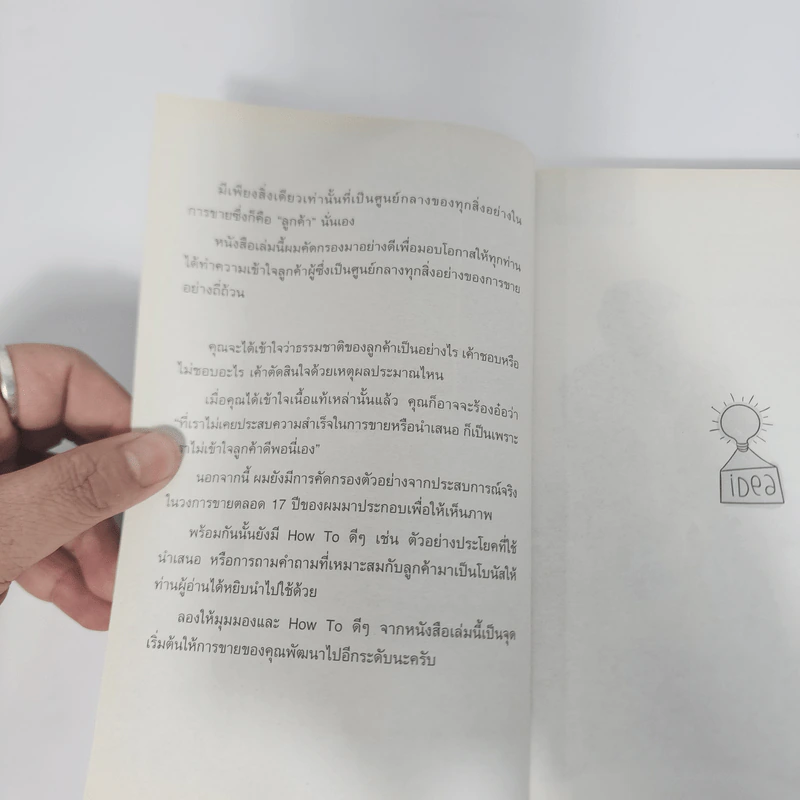 มีเพียงสิ่งเดียวเท่านั้นที่เป็นศูนย์กลางของทุกสิ่งอย่างใน
การขายซึ่งก็คือ "ลูกค้า" นั่นเอง
หนังสือเล่มนี้ผมคัดกรองมาอย่างดีเพื่อมอบโอกาสให้ทุกท่าน
ได้ทำความเข้าใจลูกค้าผู้ซึ่งเป็นศูนย์กลางทุกสิ่งอย่างของการขาย
อย่างถี่ถ้วน
คุณจะได้เข้าใจว่าธรรมชาติของลูกค้าเป็นอย่างไร เค้าชอบหรือ
ไม่ชอบอะไร เค้าตัดสินใจด้วยเหตุผลประมาณไหน
เมื่อคุณได้เข้าใจเนื้อแท้เหล่านั้นแล้ว คุณก็อาจจะร้องอ๋อว่า
"ที่เราไม่เคยประสบความสำเร็จในการขายหรือนำเสนอ ก็เป็นเพราะ
ไม่เข้าใจลูกค้าดีพอนี่เอง"
นอกจากนี้ ผมยังมีการคัดกรองตัวอย่างจากประสบการณ์จริง
ในวงการขายตลอด 17 ปีของผมมาประกอบเพื่อให้เห็นภาพ
พร้อมกันนั้นยังมี How To ดีๆ เช่น ตัวอย่างประโยคที่ใช้
นำเสนอ หรือการถามคำถามที่เหมาะสมกับลูกค้ามาเป็นโบนัสให้
ท่านผู้อ่านได้หยิบนำไปใช้ด้วย
ลองให้มุมมองและ How To ดีๆ จากหนังสือเล่มนี้เป็นจุด
เริ่มต้นให้การขายของคุณพัฒนาไปอีกระดับนะครับ
iDea